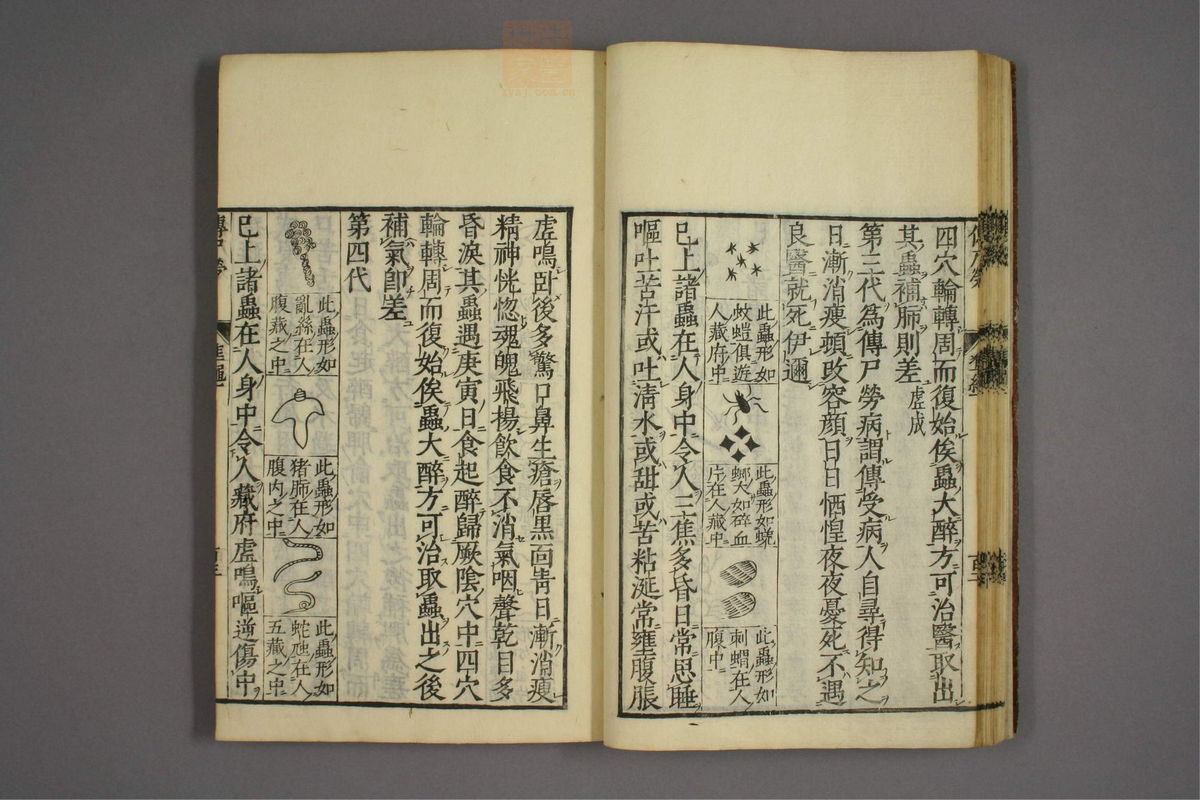 四穴輪轉周而復始俟蟲大醉方可治醫取出
其蟲補肺則差虛成
第三代為傳尸勞病謂傳受病人自尋得知之
日漸消瘦頓改容顏日日恓惶夜夜憂死不遇
良醫就死伊邇
此蟲形如
蚊螘俱遊
人藏府中
此蟲形如蜣
螂大如碎血
片在人藏中
此蟲形如
刺蝟在人
腹中
已上諸蟲在人身中令人三焦多昏日常思睡
嘔吐苦汗或吐清水或甜或苦粘涎常壅腹脹
虛鳴卧後多驚口鼻生瘡唇黑面青日漸消瘦
精神恍惚魂魄飛揚飲食不消氣咽聲乾目多
昏淚其蟲遇庚寅日食起醉歸厥陰穴中四穴
輪轉周而復始俟蟲大醉方可治取蟲出之後
補氣即差
第四代
此蟲形如
亂絲在人
腹藏之中
此蟲形如
猪肺在人
腹内之中
此蟲形如
蛇虺在人
五藏之中
已上諸蟲在人身中令人藏府虛鳴嘔逆傷中